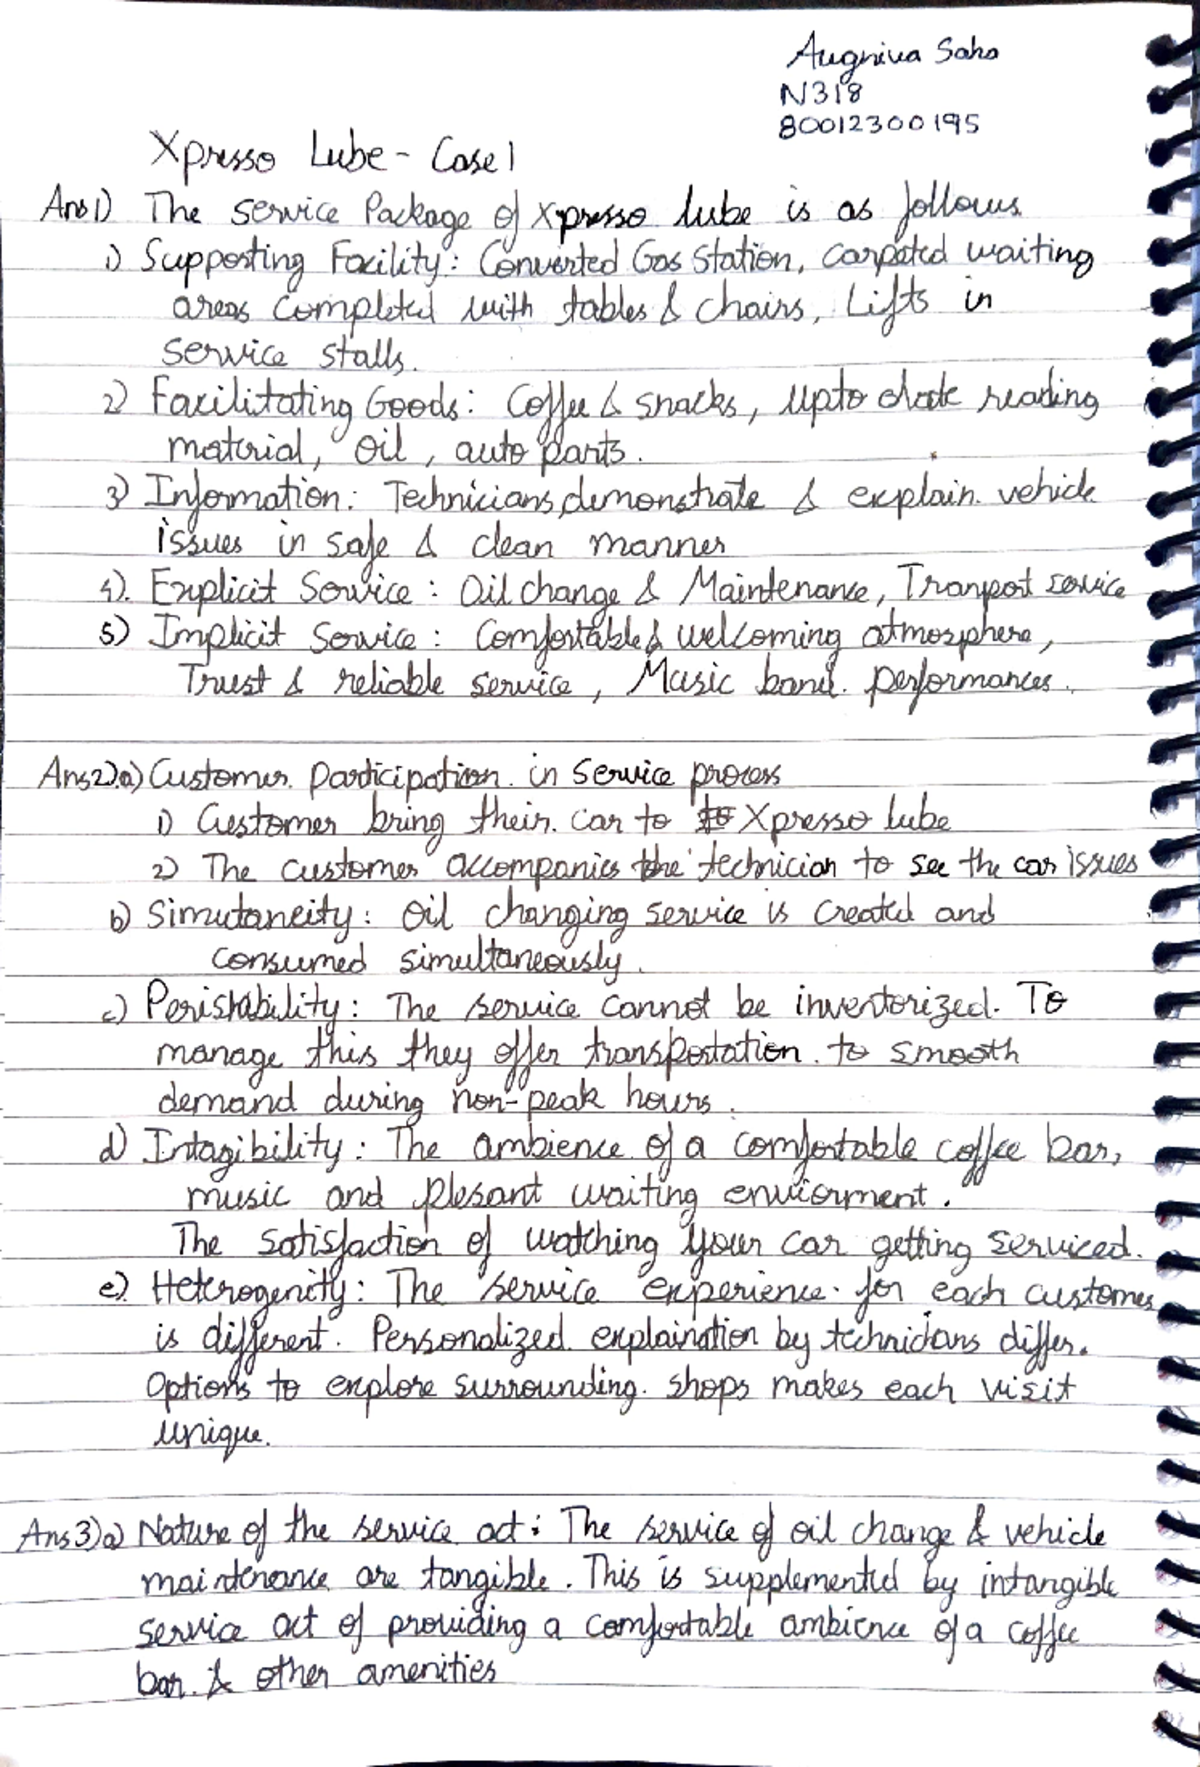 Augniva Saha
N318
80012300195
Xpresso Lube - Case 1
Ans1) The Service Package of Xpresso lube is as follows
1) Supporting Facility: Converted Gas Station, carpeted waiting
areas completed with tables & chairs, Lifts in
service stalls.
2) Facilitating Goods: Coffee & snacks, upto date reading
material, oil, auto parts.
3) Information: Technicians demonstrate & explain vehicle
issues in safe & clean manner
4). Explicit Service: Oil change & Maintenance, Tranport service
5) Implicit Service: Comfortable & welcoming atmosphere,
Trust & reliable service, Music band performances.
Ans2).a) Customer participation in service process
1) Customer bring their car to Xpresso lube
2) The customer accompanies the technician to see the car issues
b) Simutaneity: Oil changing service is created and
consumed simultaneously.
c) Perishability: The service cannot be inventorized. To
manage this they offer transportation to smooth
demand during non-peak hours.
d) Intagibility: The ambience of a comfortable coffee bar,
music and plesant waiting enviorment.
The satisfaction of watching your car getting serviced.
e). Heterogenity: The service experience for each customer
is different. Personalized explaination by technicians differ.
Options to explore surrounding shops makes each visit
unique.
Ans3)a) Nature of the service act: The service of oil change & vehicle
maintenance are tangible. This is supplemented by intangible
service act of providing a comfortable ambience of a coffee
bar & other amenities